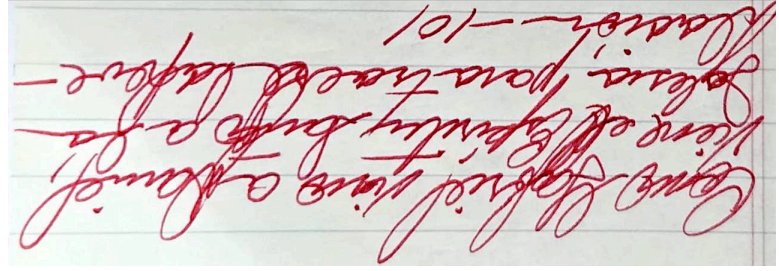 Como Gabriel vino a Daniel,
viene el Espíritu Santo a la
Iglesia, para traerle la Reve-
lación. -101